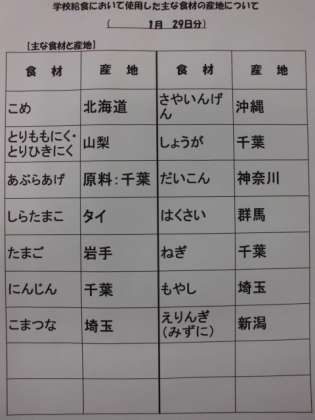 学校給食において使用した主な食材の産地について
( 1月 29日分)
【主な食材と産地】
食 材 産 地 食 材 産 地
こめ 北海道 さやいんげん 沖縄
とりももにく・とりひきにく 山梨 しょうが 千葉
あぶらあげ 原料：千葉 だいこん 神奈川
しらたまこ タイ はくさい 群馬
たまご 岩手 ねぎ 千葉
にんじん 千葉 もやし 埼玉
こまつな 埼玉 えりんぎ(みずに) 新潟